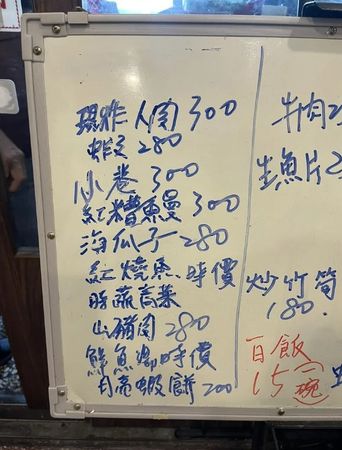 現炸人肉300
蚵 280
小卷 300
紅糟魚曼 300
海瓜子 280
紅燒魚 時價
時蔬高菜
山豬肉 280
鮮魚湯時價
月亮蝦餅 200
牛肉2
生魚片2
炒竹筍
180.
百飯
15(一碗)